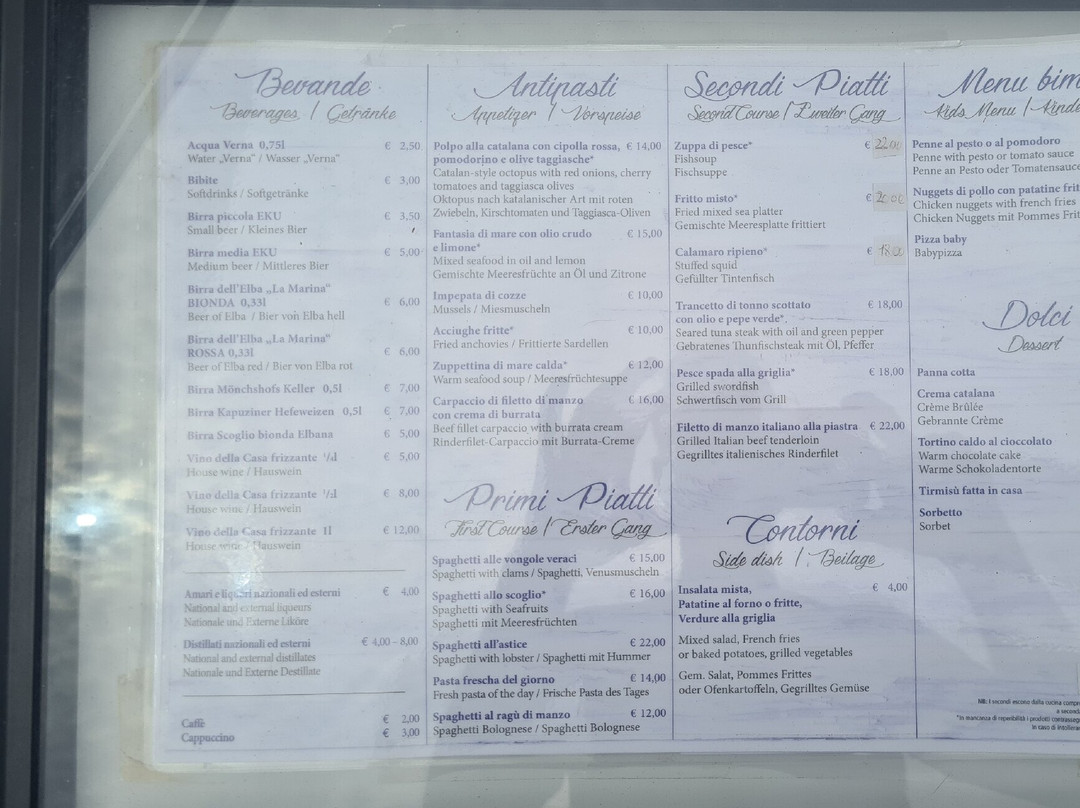 Bevande
Beverages / Getränke
Acqua Verna 0,75l € 2,50
Water „Verna“ / Wasser „Verna“
Bibite € 3,00
Softdrinks / Softgetränke
Birra piccola EKU € 3,50
Small beer / Kleines Bier
Birra media EKU € 5,00
Medium beer / Mittleres Bier
Birra dell'Elba „La Marina“
BIONDA 0,33l € 6,00
Beer of Elba / Bier von Elba hell
Birra dell'Elba „La Marina“
ROSSA 0,33l € 6,00
Beer of Elba red / Bier von Elba rot
Birra Mönchshofs Keller 0,5l € 7,00
Birra Kapuziner Hefeweizen 0,5l € 7,00
Birra Scoglio bionda Elbana € 5,00
Vino della Casa frizzante € 5,00
House wine / Hauswein
Vino della Casa frizzante € 8,00
House wine / Hauswein
Vino della Casa frizzante 1l € 12,00
House wine / Hauswein
Amari e liquori nazionali ed esterni € 4,00
National and external liqueurs
Nationale und Externe Liköre
Distillati nazionali ed esterni € 4,00 – 8,00
National and external distillates
Nationale und Externe Destillate
Caffè € 2,00
Cappuccino € 3,00
Antipasti
Appetizer / Vorspeise
Polpo alla catalana con cipolla rossa, € 14,00
pomodorino e olive taggiasche*
Catalan-style octopus with red onions, cherry
tomatoes and taggiasca olives
Oktopus nach katalanischer Art mit roten
Zwiebeln, Kirschtomaten und Taggiasca-Oliven
Fantasia di mare con olio crudo € 15,00
e limone*
Mixed seafood in oil and lemon
Gemischte Meeresfrüchte an Öl und Zitrone
Impepata di cozze € 10,00
Mussels / Miesmuscheln
Acciughe fritte* € 10,00
Fried anchovies / Frittierte Sardellen
Zuppettina di mare calda* € 12,00
Warm seafood soup / Meeresfrüchtesuppe
Carpaccio di filetto di manzo € 16,00
con crema di burrata
Beef fillet carpaccio with burrata cream
Rinderfilet-Carpaccio mit Burrata-Creme
Primi Piatti
First Course / Erster Gang
Spaghetti alle vongole veraci € 15,00
Spaghetti with clams / Spaghetti, Venusmuscheln
Spaghetti allo scoglio* € 16,00
Spaghetti with Seafruits
Spaghetti mit Meeresfrüchten
Spaghetti all'astice € 22,00
Spaghetti with lobster / Spaghetti mit Hummer
Pasta frescha del giorno € 14,00
Fresh pasta of the day / Frische Pasta des Tages
Spaghetti al ragù di manzo € 12,00
Spaghetti Bolognese / Spaghetti Bolognese
Secondi Piatti
Second Course / Zweiter Gang
Zuppa di pesce* € 22.00
Fishsoup
Fischsuppe
Fritto misto* € 20.00
Fried mixed sea platter
Gemischte Meeresplatte frittiert
Calamaro ripieno* € 18.00
Stuffed squid
Gefüllter Tintenfisch
Trancetto di tonno scottato € 18,00
con olio e pepe verde*
Seared tuna steak with oil and green pepper
Gebratenes Thunfischsteak mit Öl, Pfeffer
Pesce spada alla griglia* € 18,00
Grilled swordfish
Schwertfisch vom Grill
Filetto di manzo italiano alla piastra € 22,00
Grilled Italian beef tenderloin
Gegrilltes italienisches Rinderfilet
Contorni
Side dish / Beilage
Insalata mista, € 4,00
Patatine al forno o fritte,
Verdure alla griglia
Mixed salad, French fries
or baked potatoes, grilled vegetables
Gem. Salat, Pommes Frittes
oder Ofenkartoffeln, Gegrilltes Gemüse
Menu bim
Kids Menu / Kinde
Penne al pesto o al pomodoro
Penne with pesto or tomato sauce
Penne an Pesto oder Tomatensauce
Nuggets di pollo con patatine frit
Chicken nuggets with french fries
Chicken Nuggets mit Pommes Frit
Pizza baby
Babypizza
Dolci
Dessert
Panna cotta
Crema catalana
Crème Brûlée
Gebrannte Crème
Tortino caldo al cioccolato
Warm chocolate cake
Warme Schokoladentorte
Tirmisù fatta in casa
Sorbetto
Sorbet
NB. I secondi escono dalla cucina compr
a seconda
*In mancanza di reperibilità i prodotti contrasseg
In caso di intolleran